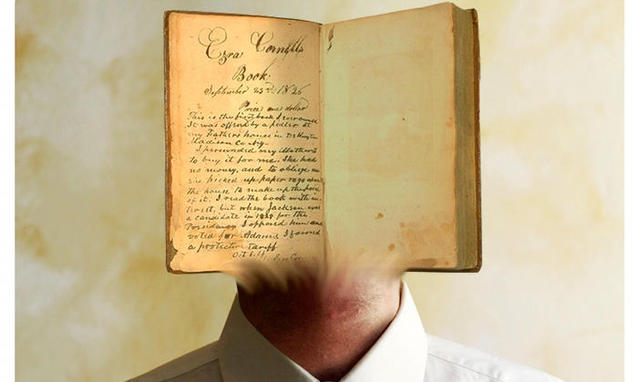 Ezra Cornells
Book
September 23rd 1826
Price one dollar
This is the first book I
It was offered by a pedler at
my Father's house in DeRuyter
Madison Co. N.Y.
I persuaded my Mother
to buy it for me. She had
no money, and to oblige me
she picked up paper rags
the house to make up the price
of it. I read the book with in-
terest, but when Jackson was
a candidate in 1828 for the
Presidency I opposed him and
voted for Adams I favored
a protective tariff
Oct